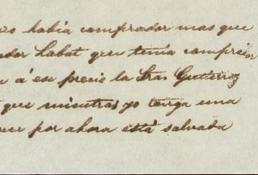 había comprador mas que
Labat que tenia comprador
á ese precio la Sra. Gutierrez
que mientras yo tenga una
por ahora está salvada